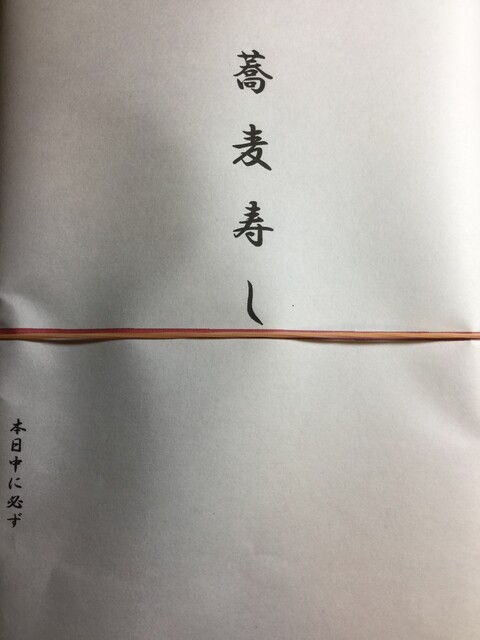 蕎麦寿し
本日中に必ず